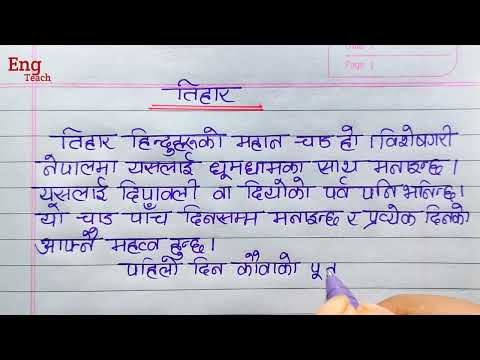 Eng
Teach
Page
तिहार
तिहार हिन्दुहरूको महान चाड हो । विशेषगरी
नेपालमा यसलाई धूमधामका साथ मनाइन्छ ।
यसलाई दिपावली वा दियोको पर्व पनि भनिन्छ।
यो चाड पाँच दिनसम्म मनाइन्छ र प्रत्येक दिनको
आफ्नै महत्व हुन्छ ।
पहिलो दिन कौवाको पू